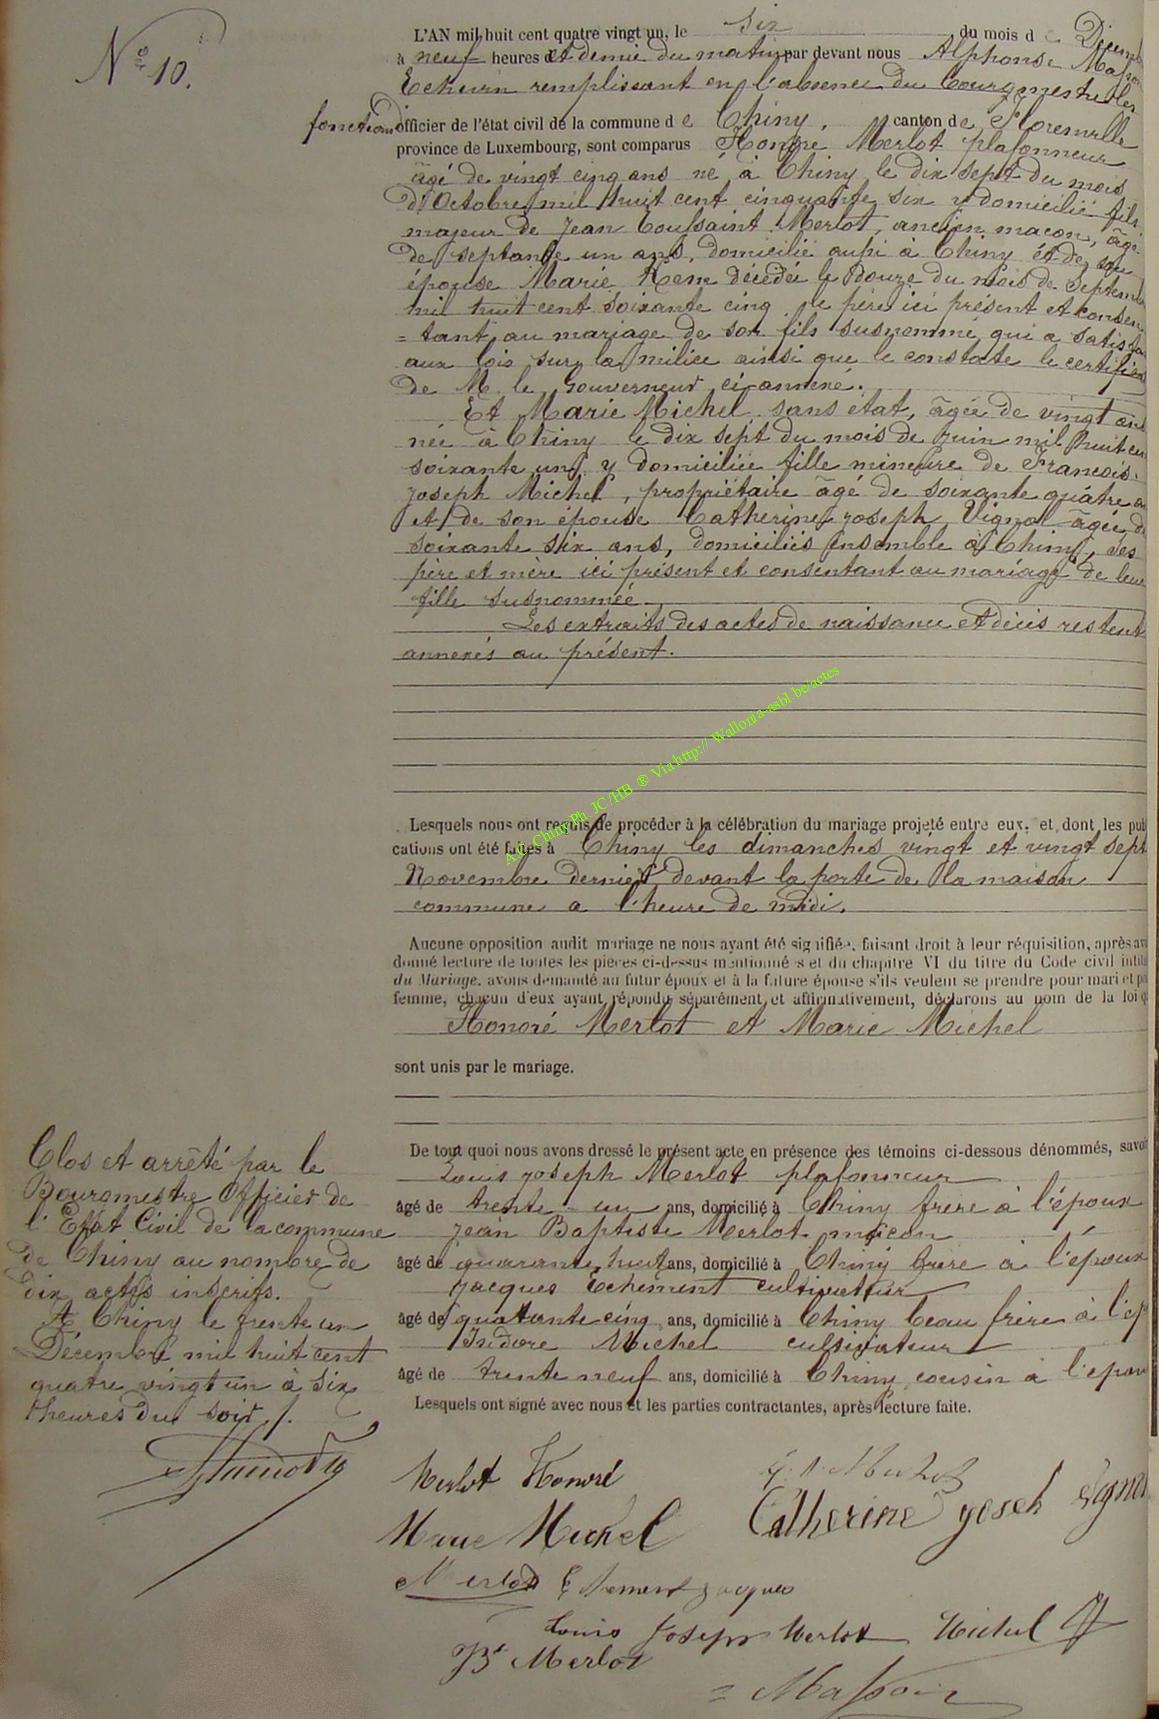 N° 10.
L'AN mil huit cent quatre vingt un, le six du mois de Décem
à neuf heures et demie du matin par devant nous Alphonse Masson
Echevin remplissant en l'absence du Bourgmestre les
fonctions d'officier de l'état civil de la commune de Chiny, canton de Florenville
province de Luxembourg, sont comparus Honoré Merlot plafonneur
âgé de vingt cinq ans né à Chiny le dix sept du mois
d'Octobre mil huit cent cinquante six y domicilié fils
majeur de Jean Toussaint Merlot, ancien maçon, âgé
de septante un ans, domicilié aussi à Chiny et de son
épouse Marie décédée le Douze du mois de Septembre
mil huit cent soixante cinq, le père ici présent et consen
= tant au mariage de son fils susnommé qui a satisfait
aux lois sur la milice ainsi que le constate le certificat
de M. le Gouverneur ci annexé.
Et Marie Michel sans état, âgée de vingt ans
née à Chiny le dix sept du mois de Juin mil huit cent
soixante un, y domiciliée fille mineure de François
Joseph Michel, propriétaire âgé de soixante quatre a
et de son épouse Catherine Joseph Vignol âgée de
soixante six ans, domiciliés ensemble à Chiny, ses
père et mère ici présent et consentant au mariage de leur
fille susnommée
Les extraits des actes de naissance et décès restent
annexés au présent.
A.C. Chiny Ph JC/HB ® Via http:// Wallonia-asbl.be/actes
Lesquels nous ont requis de procéder à la célébration du mariage projeté entre eux, et dont les publi
cations ont été faites à Chiny les dimanches vingt et vingt sept
Novembre dernier devant la porte de la maison
commune à l'heure de midi.
Aucune opposition audit mariage ne nous ayant été signifiée, faisant droit à leur réquisition, après av
donné lecture de toutes les pièces ci-dessus mentionnées et du chapitre VI du titre du Code civil intitu
du Mariage, avons demandé au futur époux et à la future épouse s'ils veulent se prendre pour mari et po
femme, chacun d'eux ayant répondu séparément et affirmativement, déclarons au nom de la loi q
Honoré Merlot et Marie Michel
sont unis par le mariage.
De tout quoi nous avons dressé le présent acte en présence des témoins ci-dessous dénommés, savoi
Louis Joseph Merlot plafonneur
âgé de trente - un ans, domicilié à Chiny frère à l'époux
Jean Baptiste Merlot maçon
âgé de quarante huit ans, domicilié à Chiny frère à l'époux
Jacques Echement cultivateur
âgé de quarante cinq ans, domicilié à Chiny beau frère à l'ép
Isidore Michel cultivateur
âgé de trente neuf ans, domicilié à Chiny cousin à l'épou
Lesquels ont signé avec nous et les parties contractantes, après lecture faite.
Clos et arrêté par le
Bourgmestre Officier de
l'Etat Civil de la commune
de Chiny au nombre de
dix actes inscrits.
A Chiny le trente un
Décembre mil huit cent
quatre vingt un à six
heures du soir /.
Merlot Honoré
Marie Michel
Catherine yoseh Vignol
Merlot Echement Jacques
Louis Joseph Merlot Michel
JBt Merlot
= Masson